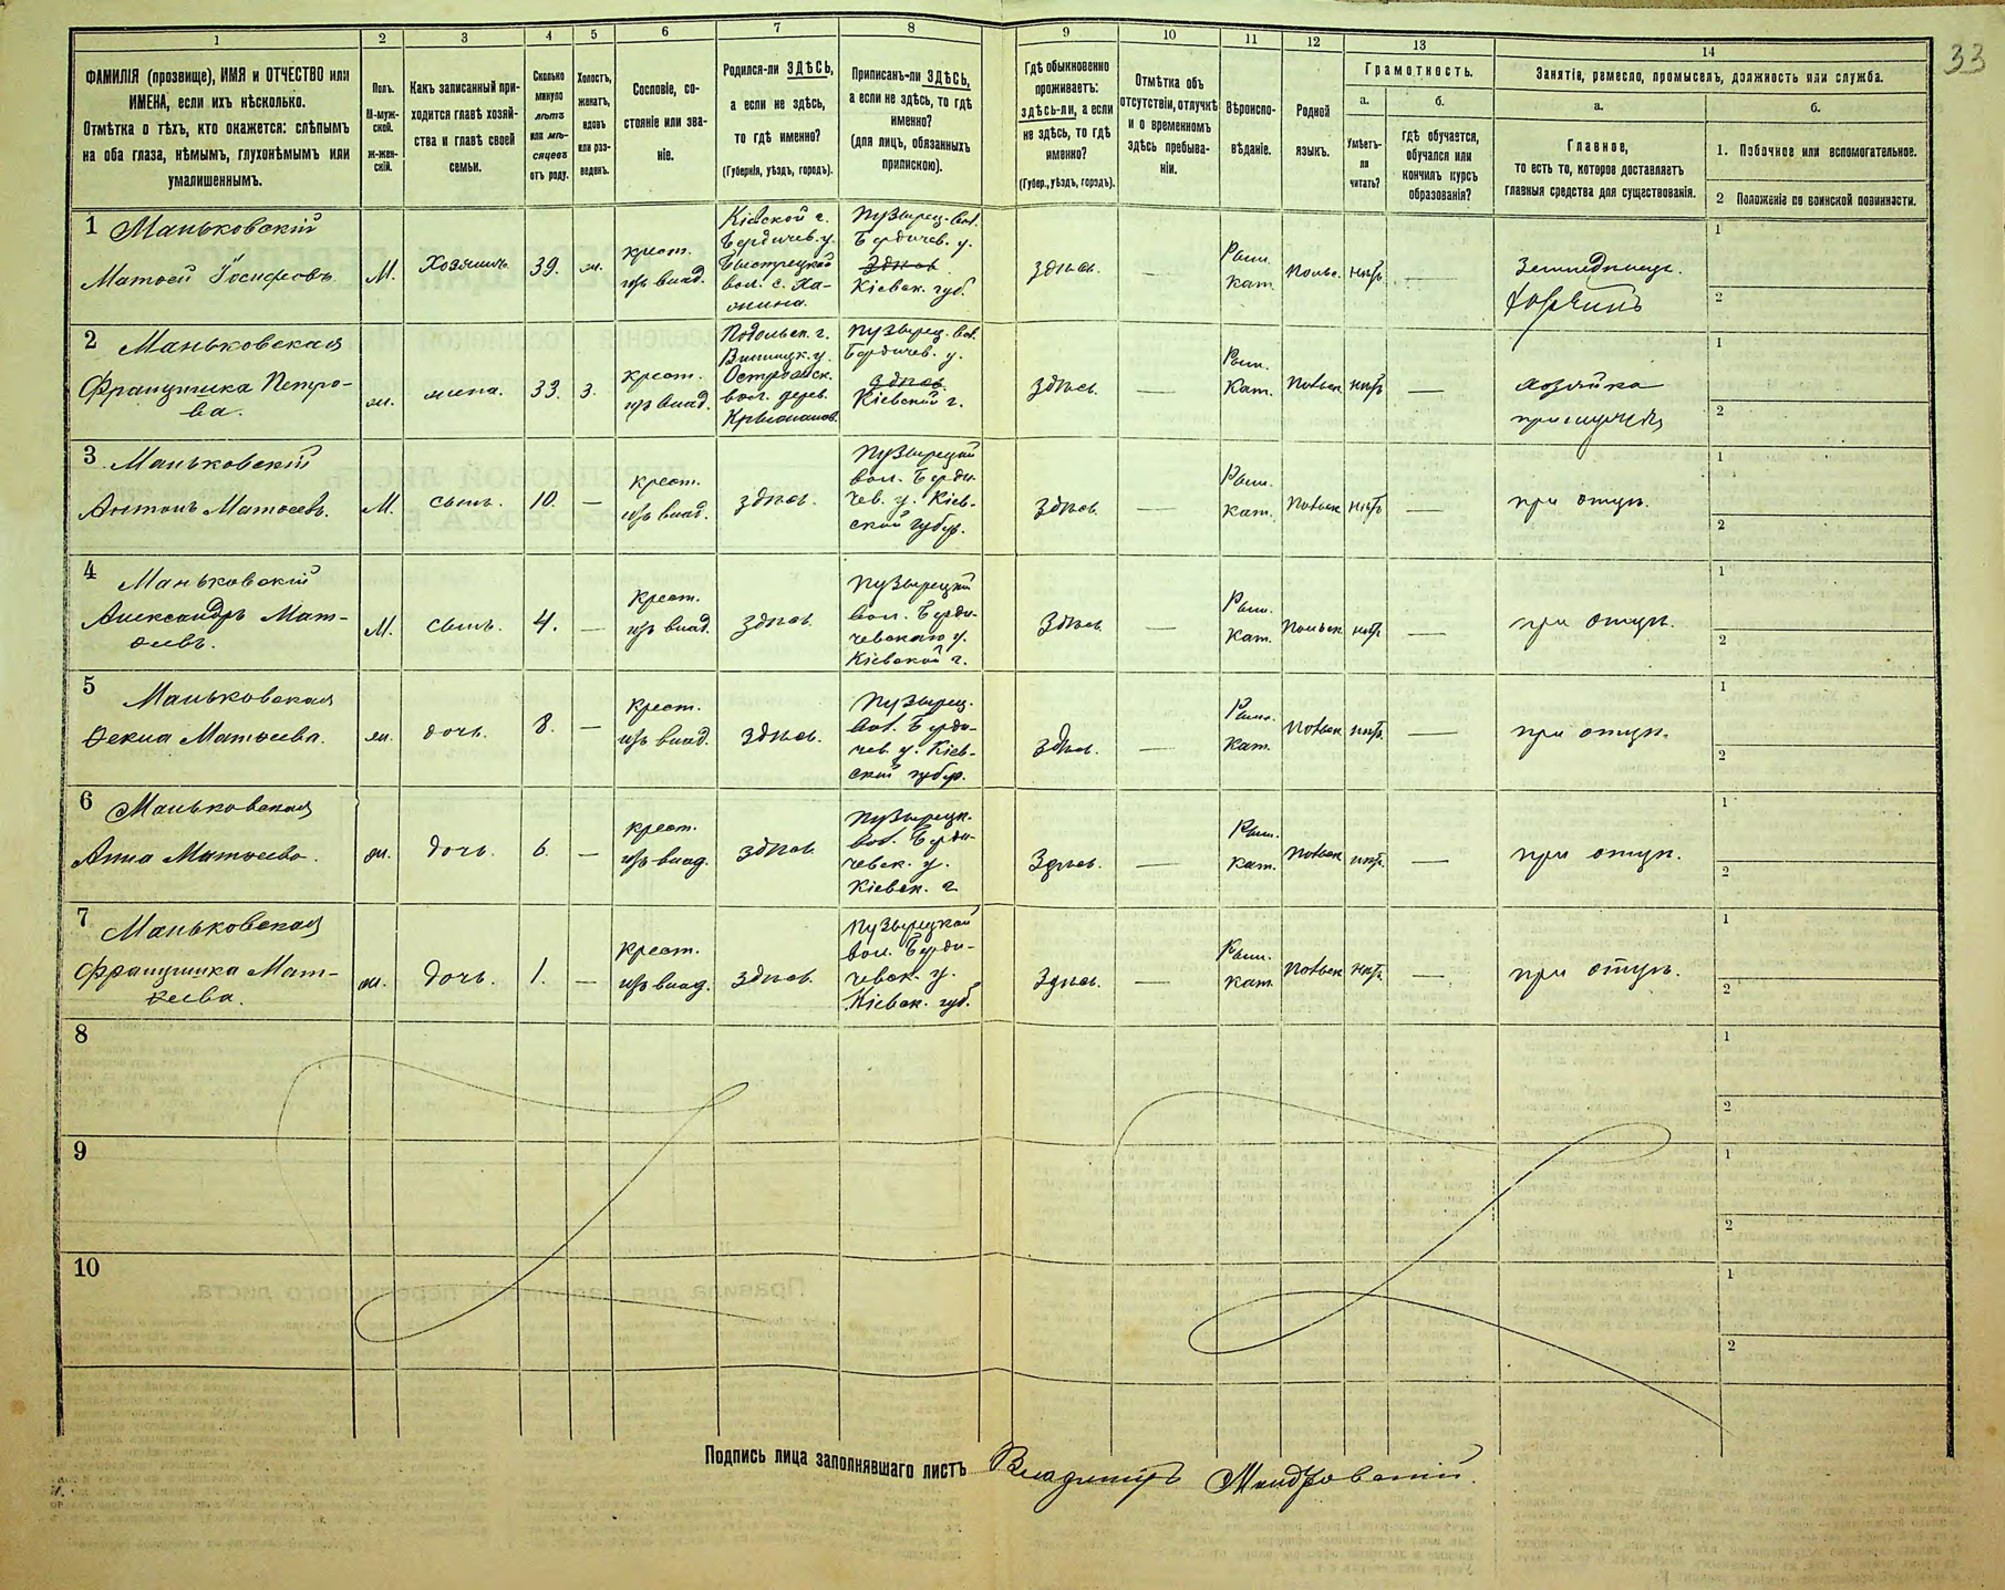 33
1
2
3
4
5
6
7
8
9
10
11
12
13
14
ФАМИЛІЯ (прозвище), ИМЯ и ОТЧЕСТВО или
ИМЕНА, если ихъ нѣсколько.
Отмѣтка о тѣхъ, кто окажется: слѣпымъ
на оба глаза, нѣмымъ, глухонѣмымъ или
умалишеннымъ.
Полъ.
М-муж-
ской.
Ж-жен-
скій.
Какъ записанный при-
ходится главѣ хозяй-
ства и главѣ своей
семьи.
Сколько
минуло
лѣтъ
или мѣ-
сяцевъ
отъ роду.
Холостъ,
женатъ,
вдовъ
или раз-
веденъ.
Сословіе, со-
стояніе или зва-
ніе.
Родился-ли ЗДѢСЬ,
а если не здѣсь,
то гдѣ именно?
(Губернія, уѣздъ, городъ).
Приписанъ-ли ЗДѢСЬ,
а если не здѣсь, то гдѣ
именно?
(для лицъ, обязанныхъ
припискою).
Гдѣ обыкновенно
проживаетъ:
здѣсь-ли, а если
не здѣсь, то гдѣ
именно?
(Губер., уѣздъ, городъ).
Отмѣтка объ
отсутствіи, отлучкѣ
и о временномъ
здѣсь пребыва-
ніи.
Вѣроиспо-
вѣданіе.
Родной
языкъ.
Грамотность.
а.
Умѣетъ-
ли
читать?
б.
гдѣ обучается,
обучался или
кончилъ курсъ
образованія?
Занятіе, ремесло, промыселъ, должность или служба.
а.
Главное,
то есть то, которое доставляетъ
главныя средства для существованія.
б.
1. Побочное или вспомогательное.
2 Положеніе по воинской повинности.
1 Маньковскій
Матѳей Іосифовъ
М.
Хозяинъ
39.
ж.
крест.
изъ влад.
Кіевской г.
Бердичев. у.
Быстрецкой
вол. с. Ха-
жина.
Пузырец. вол.
Бердичев. у.
Здѣсь
Кіевск. губ.
здѣсь.
—
Рим.
кат.
польс.
нѣтъ
—
Земледѣлецъ.
Хозяинъ
1
2
2 Маньковская
Францишка Петро-
ва.
ж.
жена.
33.
з.
крест.
изъ влад.
Подольск. г.
Винницк. у.
вол. дерев.
Пузырец. вол.
Бердичев. у.
здѣсь
Кіевской г.
здѣсь.
—
Рим.
Кат.
польск
нѣтъ
—
хозяйка
при мужѣ
1
2
3 Маньковскій
Антонъ Матѳеевъ.
М.
сынъ.
10.
—
крест.
изъ влад.
здѣсь.
Пузырецкой
вол. Берди-
чев. у. Кіев-
ской губер.
здѣсь.
—
Рим.
кат.
польск
нѣтъ
—
при отцѣ.
1
2
4 Маньковскій
Александръ Мат-
ѳеевъ.
М.
сынъ.
4.
—
крест.
изъ влад.
здѣсь.
Пузырецкой
вол. Берди-
чевскаго у.
Кіевской г.
Здѣсь
—
Рим.
кат.
польск
нѣтъ
—
при отцѣ.
1
2
5 Маньковская
Ѳекла Матѳеева.
ж.
дочь.
8.
—
крест.
изъ влад.
здѣсь.
Пузырец.
вол. Берди-
чев. у. Кіев-
ской губер.
здѣсь.
—
Рим.
Кат.
польск
нѣтъ
—
при отцѣ.
1
2
6 Маньковская
Анна Матѳеева.
ж.
дочь.
6.
—
крест.
изъ влад.
здѣсь
Пузырецк.
вол. Берди-
чевск. у.
Кіевск. г.
Здѣсь.
—
Рим.
кат.
польск
нѣтъ
—
при отцѣ.
1
2
7 Маньковская
Францишка Мат-
ѳеева.
ж.
дочь.
1.
—
крест.
изъ влад.
здѣсь.
Пузырецкой
вол. Берди-
чевск. у.
Кіевск. губ.
Здѣсь.
—
Рим.
кат
польск
нѣтъ
—
при отцѣ.
1
2
8
1
2
9
1
2
10
1
2
Подпись лица заполнявшаго листъ Владиміръ